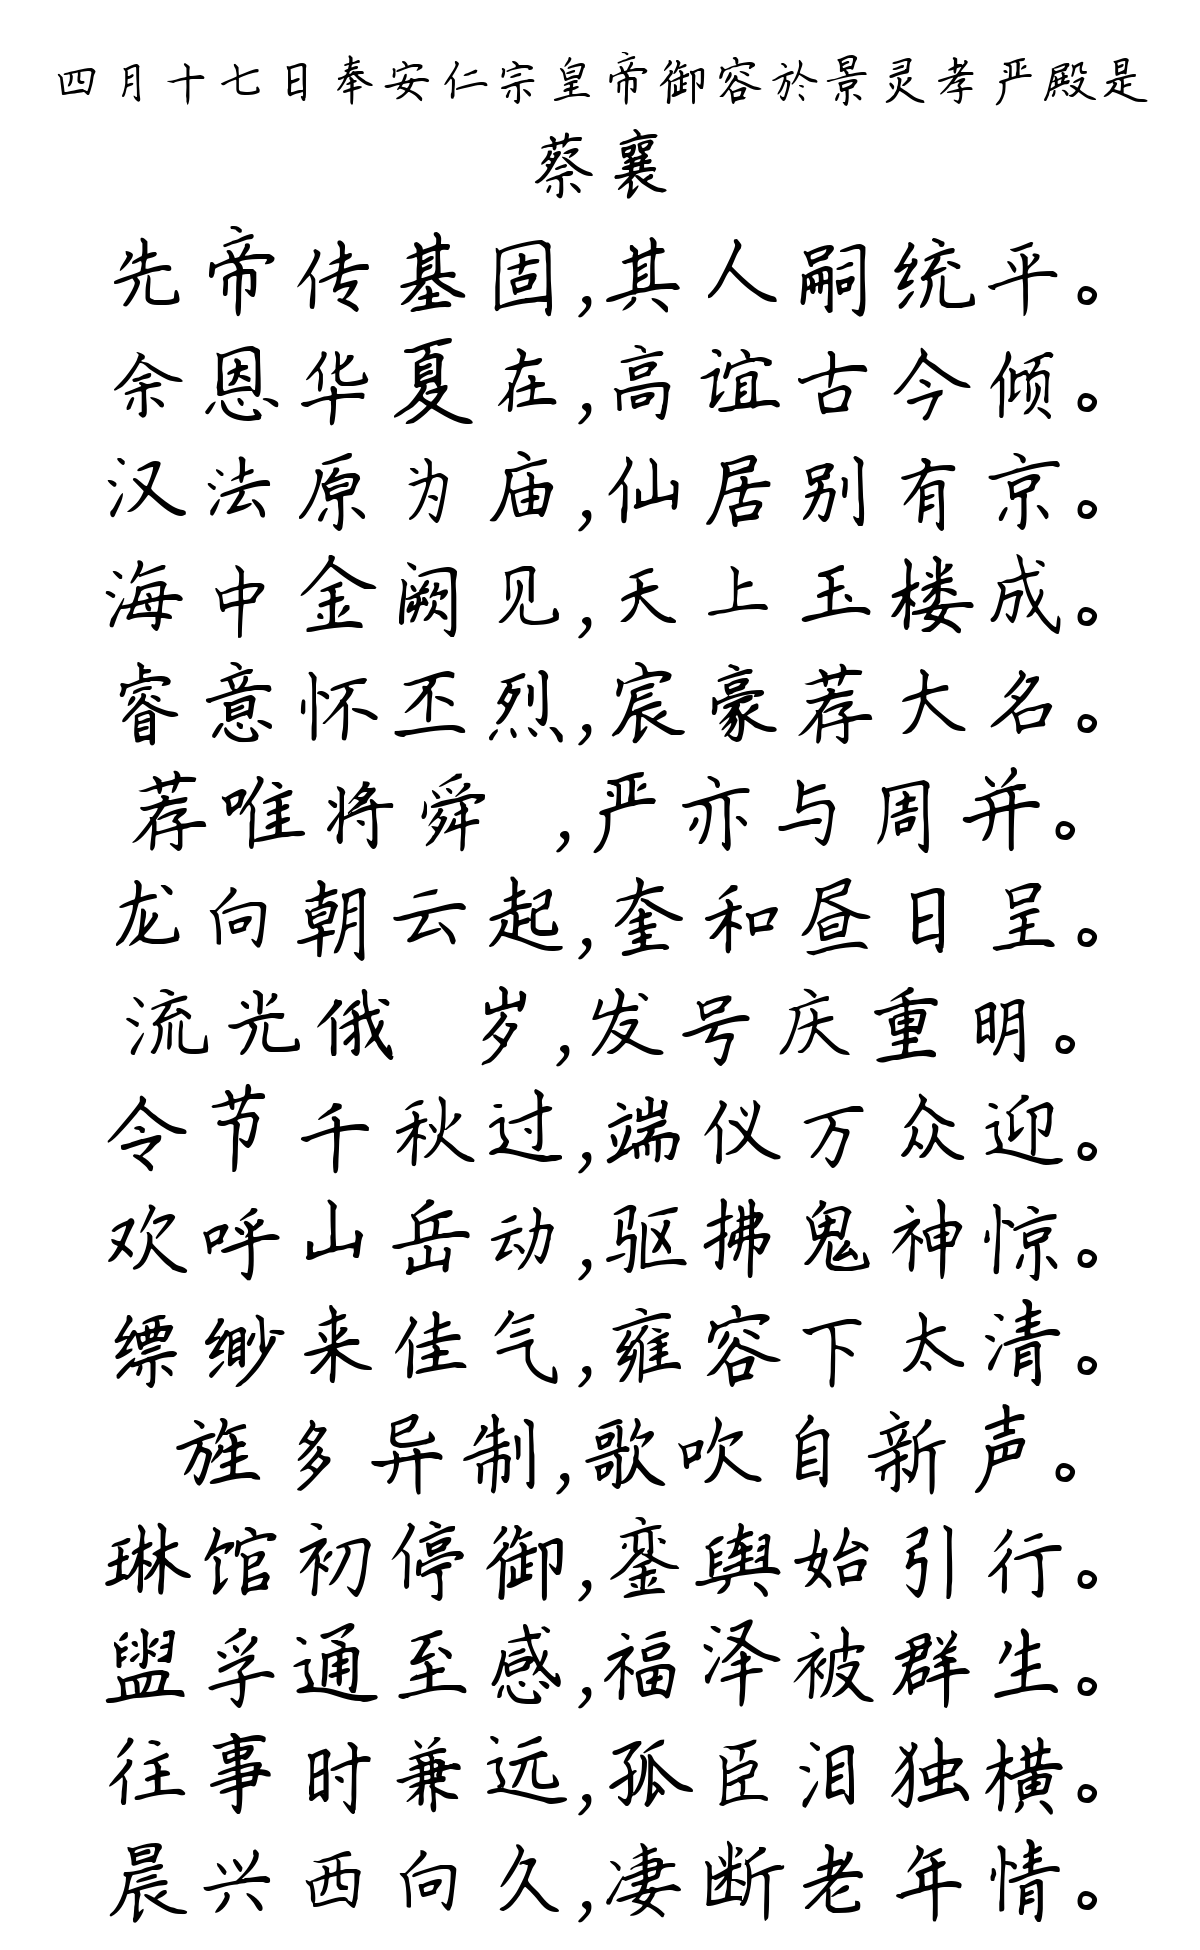 四月十七日奉安仁宗皇帝御容於景灵孝严殿是
蔡襄
先帝传基固,其人嗣统平。
余恩华夏在,高谊古今倾。
汉法原为庙,仙居别有京。
海中金阙见,天上玉楼成。
睿意怀丕烈,宸豪荐大名。
荐唯将舜 ,严亦与周并。
龙向朝云起,奎和昼日呈。
流光俄 岁,发号庆重明。
令节千秋过,端仪万众迎。
欢呼山岳动,驱拂鬼神惊。
缥缈来佳气,雍容下太清。
旌多异制,歌吹自新声。
琳馆初停御,銮舆始引行。
盥孚通至感,福泽被群生。
往事时兼远,孤臣泪独横。
晨兴西向久,凄断老年情。